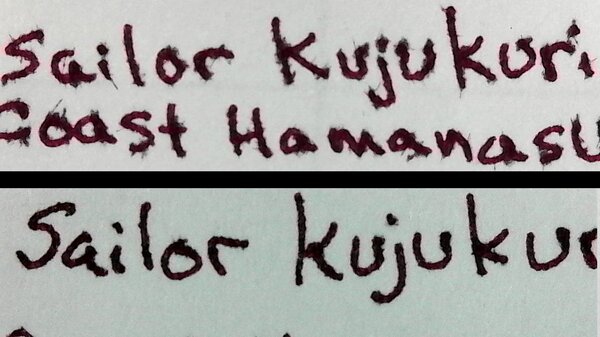 Sailor Kujukuri
Coast Hamanasu
Sailor Kujukur